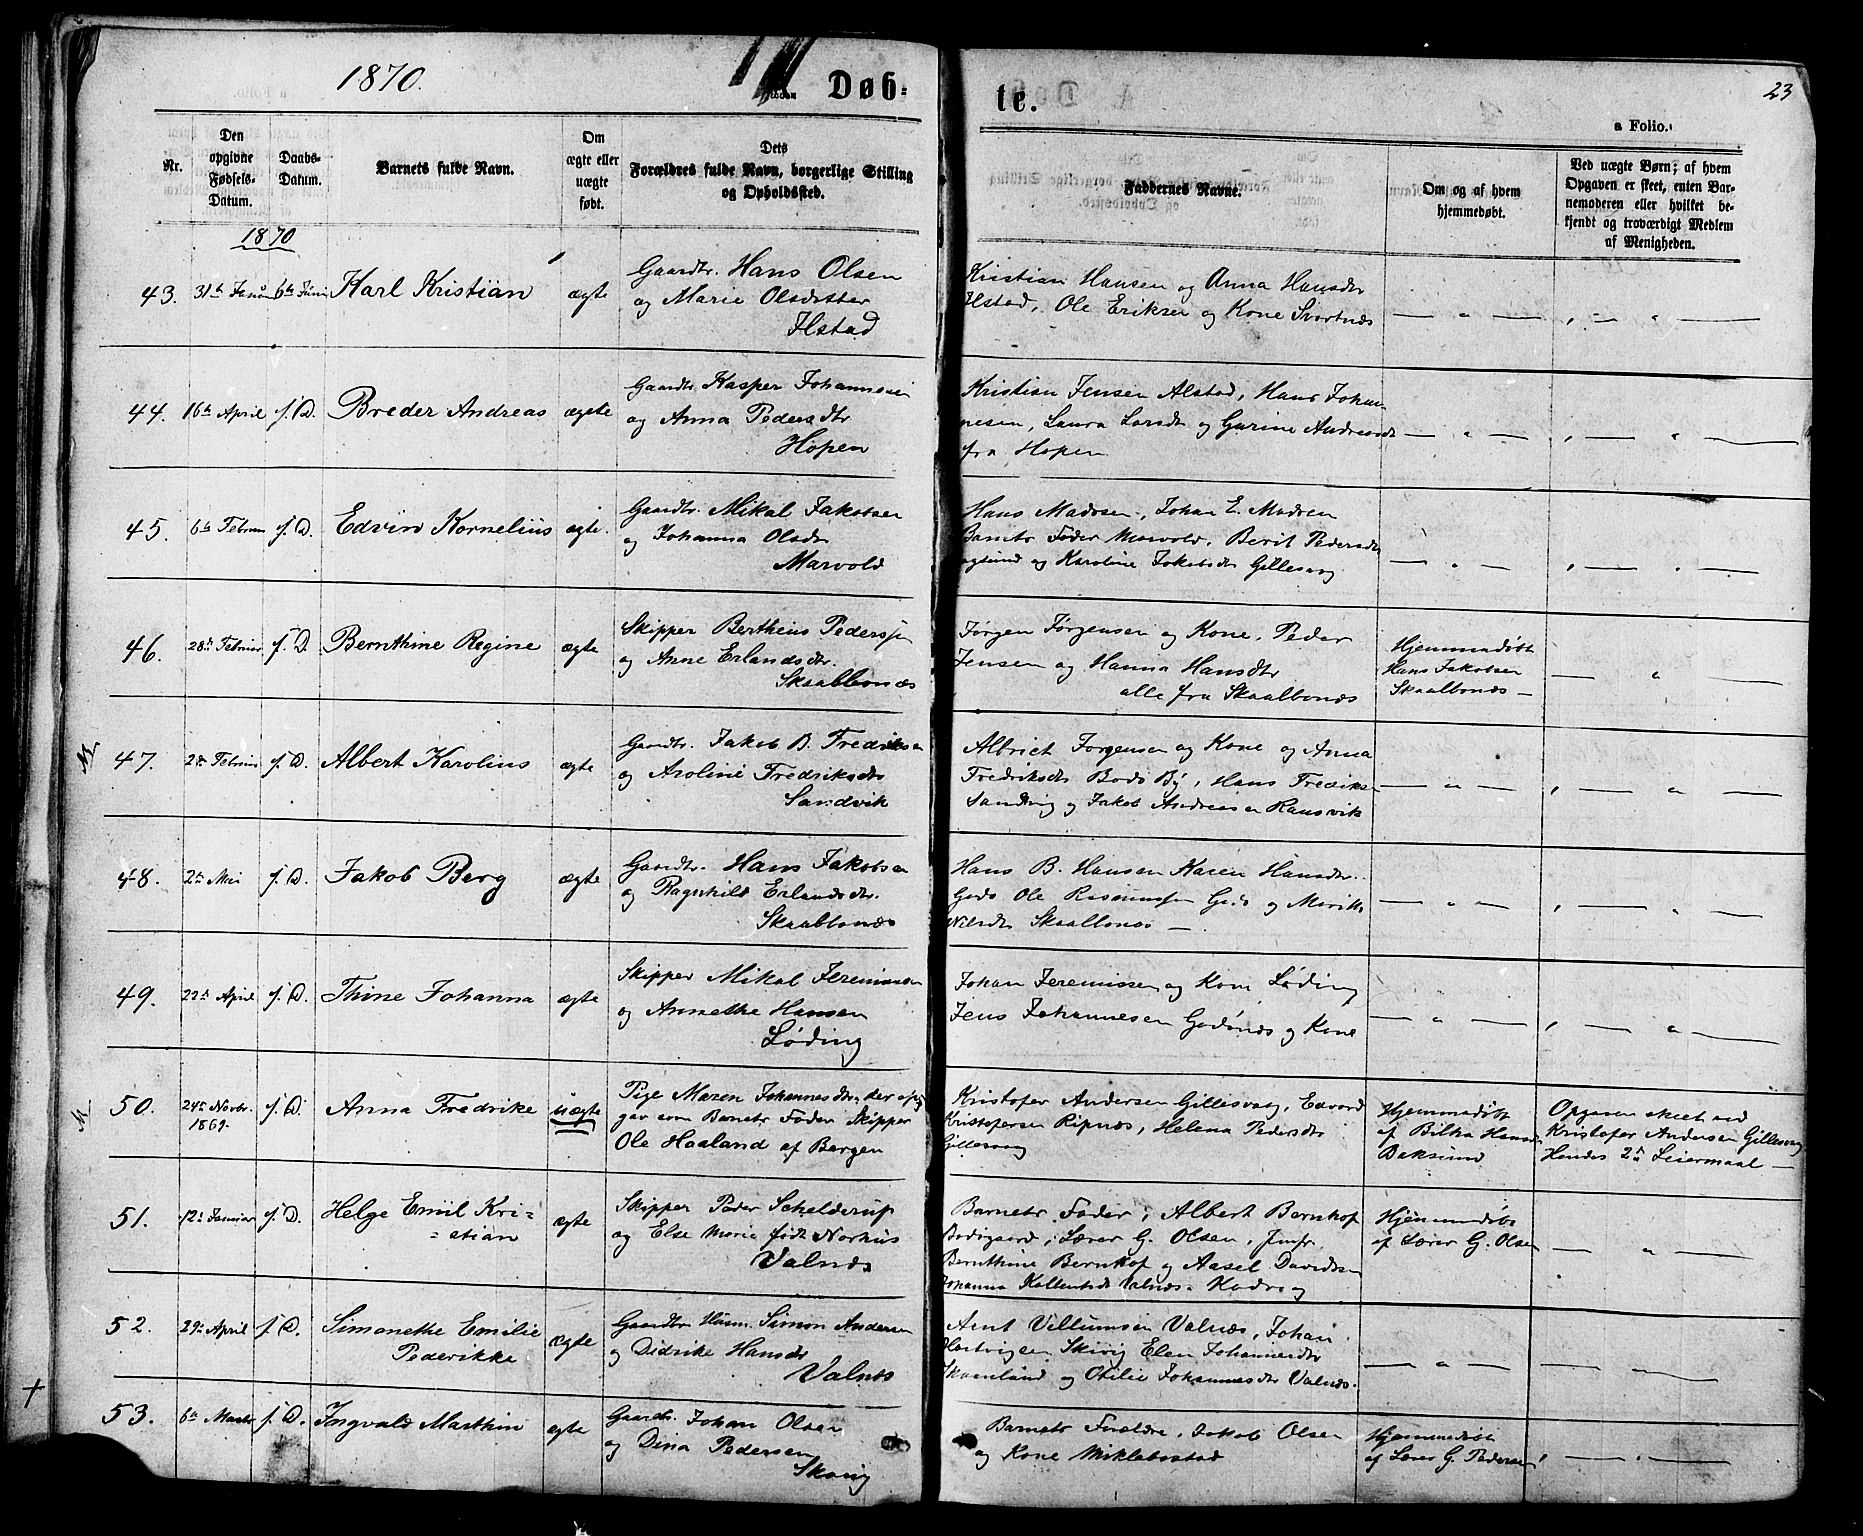 1870.
Døb-
te.
23
a Folio.
Nr.
Den
opgivne
Fødsels-
Datum.
Daabs-
Datum.
Barnets fulde Navn.
Om
ægte eller
uægte
født.
Dets
Forældres fulde Navn, borgerlige Stilling
og Opholdssted.
Faddernes Navne.
Om og af hvem
hjemmedøbt.
Ved uægte Børn; af hvem
Opgaven er skeet, enten Bar-
nemoderen eller hvilket be-
kjendt og troværdigt Medlem
af Menigheden.
1870
43. 6te Juni Karl Kristian ægte
Gaardbr. Hans Olsen
og Marie Olsdatter
Ilstad
Kristian Hansen og Anna Hansdtr
Ilstad, Ole Eriksen og Kone Svartnæs
44. 16de April f. D. Breder Andreas ægte
Gaardbr Kasper Johannesen
og Anna Pedersdtr
Hopen
Kristian Jensen Alstad, Hans Johan-
nesen, Laura Larsdtr og Gurine Andreasdtr
fra Hopen
45. 6te Februar f. D. Edvin Kornelius ægte
Gaardbr. Mikal Jakobsen
og Johanna Olsdtr
Marvold
Hans Madsen, Johan E. Madsen
Barnets Fader Marvold, Berit Pedersdtr
og Karoline Jakobsdtr Gillesvog
46. 28de Februar f. D. Bernthine Regine ægte
Skipper Bertheus Pedersen
og Anne Erlandsdtr.
Skaalbonæs
Jørgen Jørgensen og Kone, Peder
Jensen og Hanna Hansdtr
alle fra Skaalbonæs
Hjemmedøbt
Hans Jakobsen
Skaalbonæs —
47. Februar f. D. Albert Karolius ægte
Gaardbr. Jakob B. Fredriksen
og Aroline Fredriksdtr
Sandvik
Albrict Jørgensen og Kone og Anna
Fredriksdtr Bodø By, Hans Fredriksen
Sandvig og Jakob Andreasen Ramsvik
48. 2den Mai f. D. Jakob Berg ægte
Gaardbr. Hans Jakobsen
og Ragnhild Erlandsdtr.
Skaalbonæs
Hans B. Hansen Karen Hansdtr.
Gods Ole Rasmussen Gods og Marith
Nilsdtr Skaalbonæs —
49. 22de April f. D. Thine Johanna ægte
Skipper Mikal Jeremiassen
og Annethe Hansen
Løding
Johan Jeremissen og Kone Løding
Jens Johannesen Godønæs og Kone
50. 24de Novbr. f. D. Anna Fredrike uægte
1869.
Pige Maren Johannesdtr, der opgi
gav som Barnets Fader Skipper
Ole Haaland af Bergen
Kristofer Andersen Gillesvaag, Edvard
Kristofersen Ripnæs, Helena Pedersdtr
Gillesvaag
Hjemmedøbt
af Hansdtr
Baksund
Opgaven skeet ved
Kristofer Andersen Gillesvaag
Hendes 2det Leiermaal —
51. 12te Januar f. D. Helge Emil Kri-
-stian ægte
Skipper Peder Schelderup
og Else Marie født Norhus
Valnæs
Barnets Fader; Albert Bernhof
Bodøgaard; Lærer G. Olsen, Jmfr.
Bernthine Bernhof og Aasel Davidsen
Johanna Valnæs
Hjemmedøbt
af Lærer G. Olsen
52. 29de April f. D. Simonethe Emilie
Pederikke ægte
Gaardbr Simon Andersen
og Didrike Hansdtr
Valnæs
Arnt Villumsen Valnæs, Johan
Hartvigsen Skivig Elen Johannesdtr
og Otilie Johannesdtr Valnæs.
53. 6te Marts f. D. Ingvald Marthin ægte
Gaardbr. Johan Olsen
og Dina Pedersen
Skavig
Barnets Forældre, Jakob Olsen
og Kone Miklebostad
Hjemmedøbt
af Lærer G. Pedersen